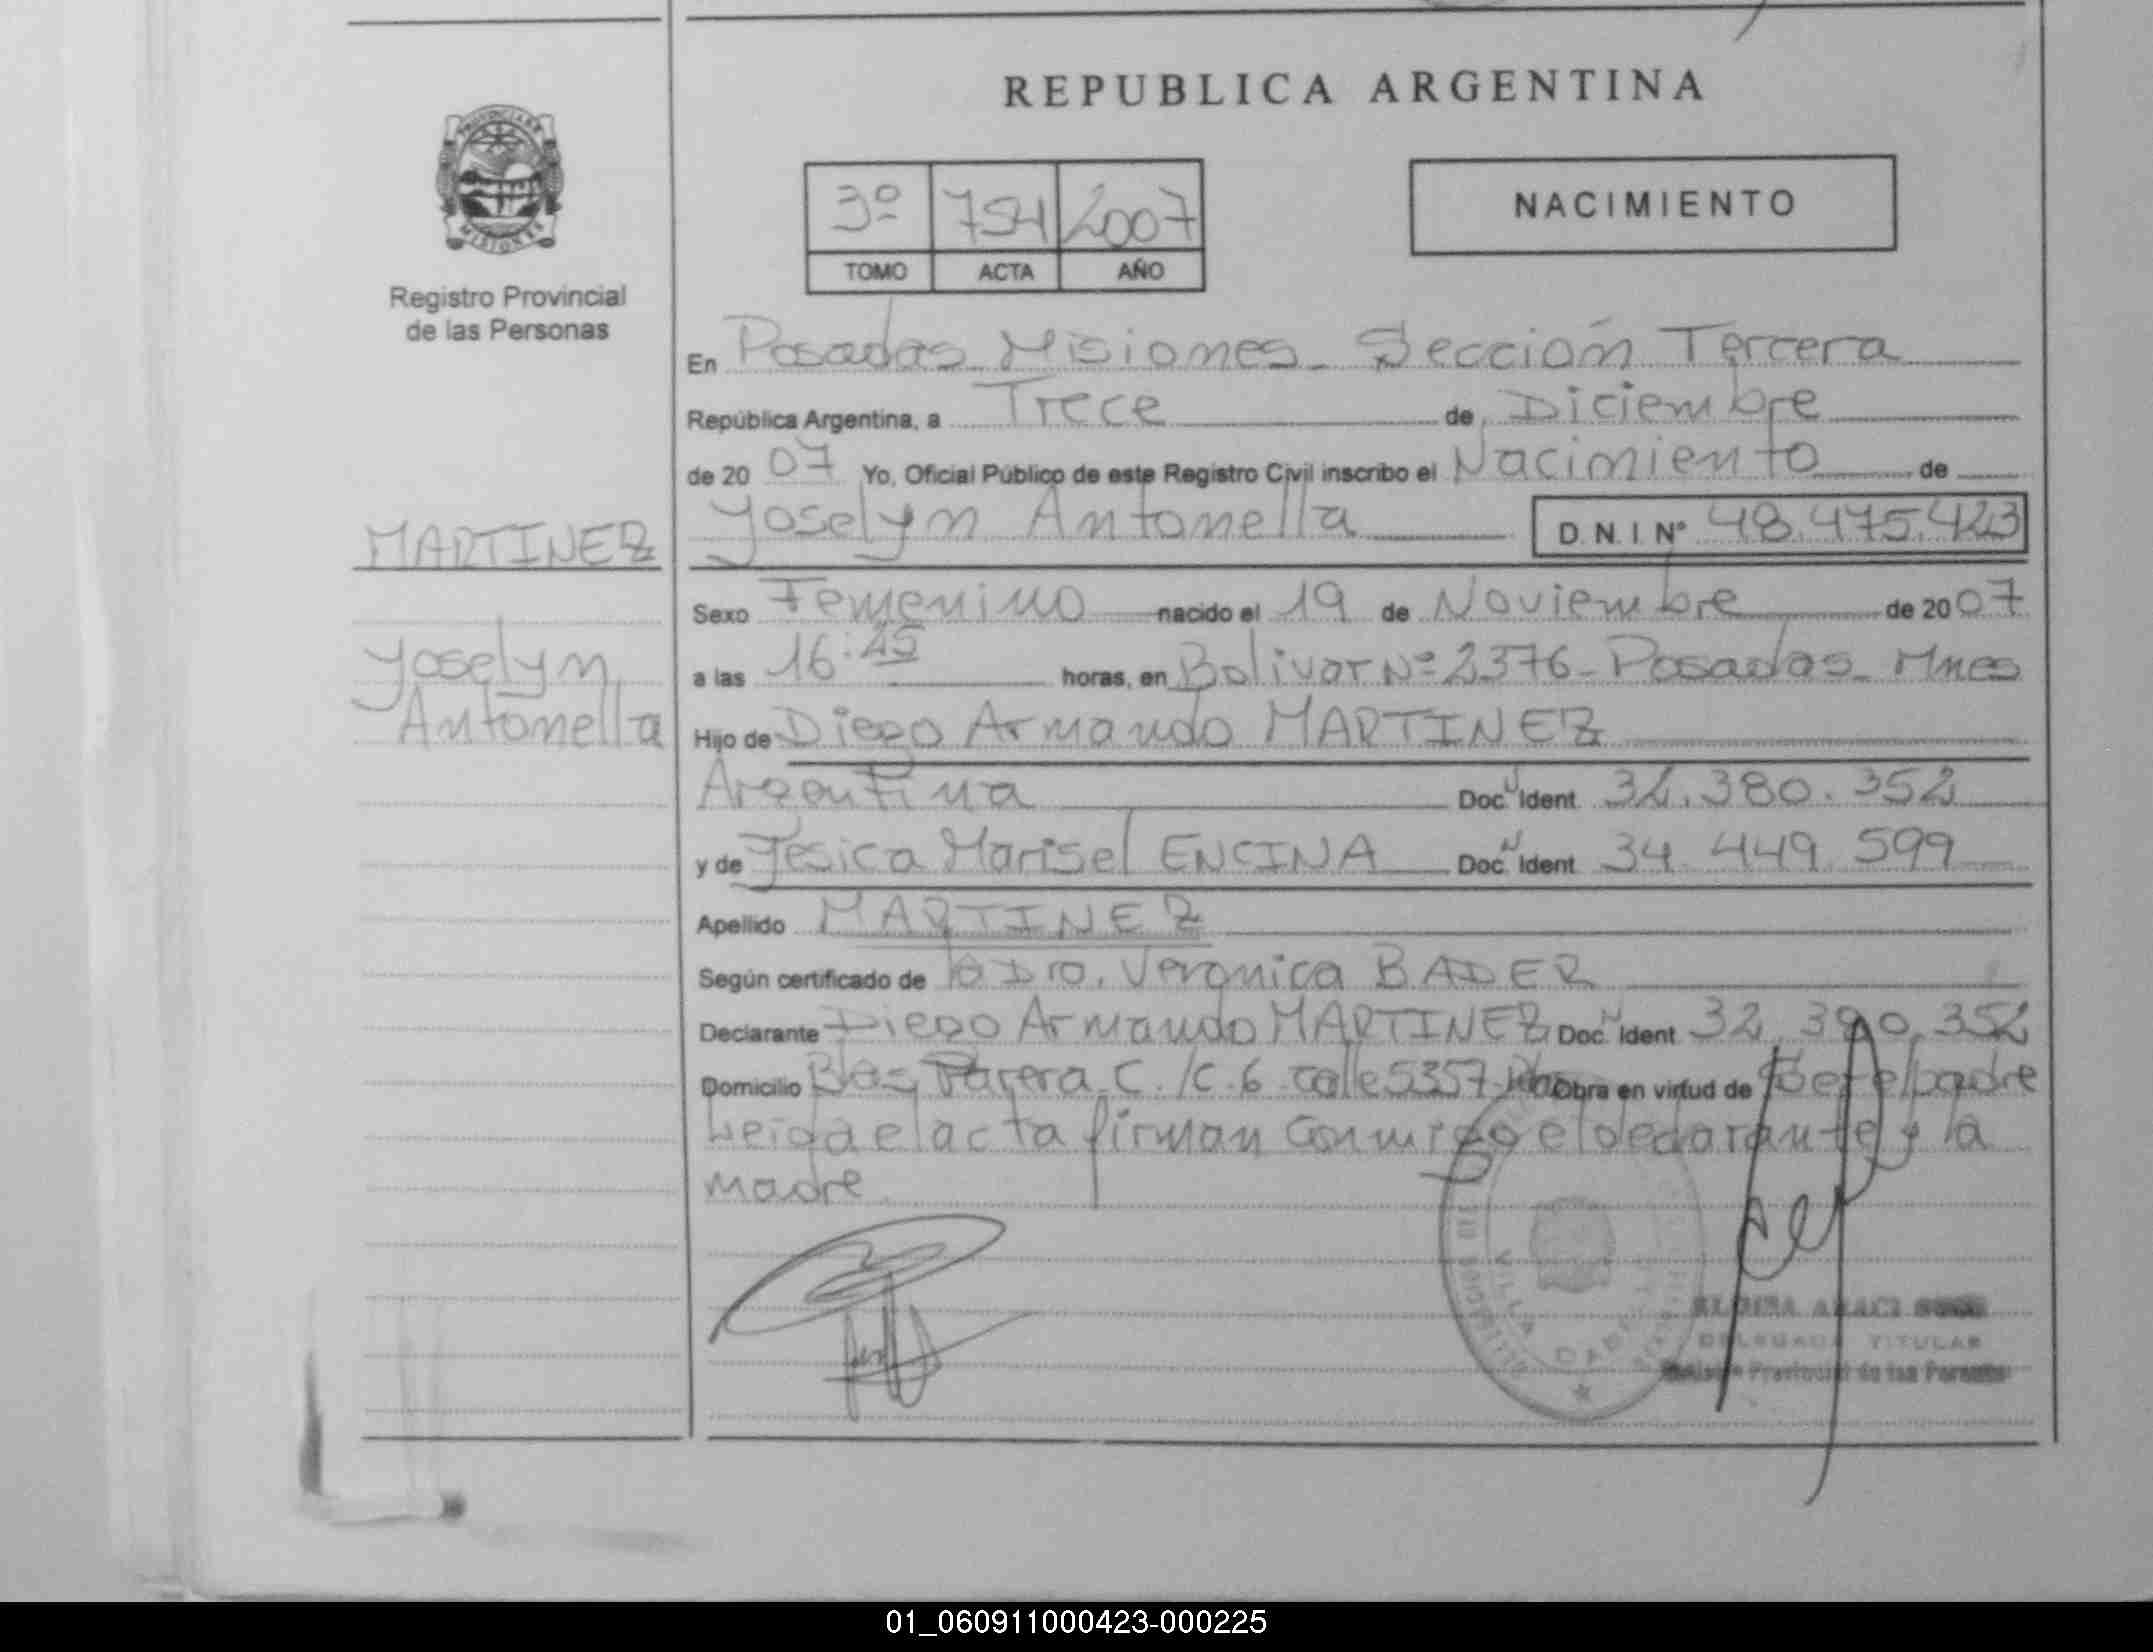 REPUBLICA ARGENTINA
PROVINCIA DE
MISIONES
Registro Provincial
de las Personas
3º 754 2007
TOMO ACTA AÑO
NACIMIENTO
En Posadas Misiones - Sección Tercera
República Argentina, a Trece de Diciembre
de 20 07 Yo, Oficial Público de este Registro Civil inscribo el Nacimiento de
MARTINEZ
Yoselyn Antonella D.N.I. Nº 48.475.423
Sexo Femenino nacido el 19 de Noviembre de 20 07
Yoselyn
Antonella
a las 16:45 horas, en Bolivar Nº 2376 - Posadas - Mnes
Hijo de Diego Armando MARTINEZ
Argentina Doc. Ident. 32.380.352
y de Yesica Marisel ENCINA Doc. Ident. 34.449.599
Apellido MARTINEZ
Según certificado de la Dra. Veronica BADER
Declarante Diego Armando MARTINEZ Doc. Ident. 32.380.352
Domicilio Blas Parera C./C. 6 calle 5357 Obra en virtud de ser el padre
Leida el acta firman conmigo el declarante y la
madre
VILLA
DELEGADA TITULAR
Provincial de las Personas
01_060911000423-000225